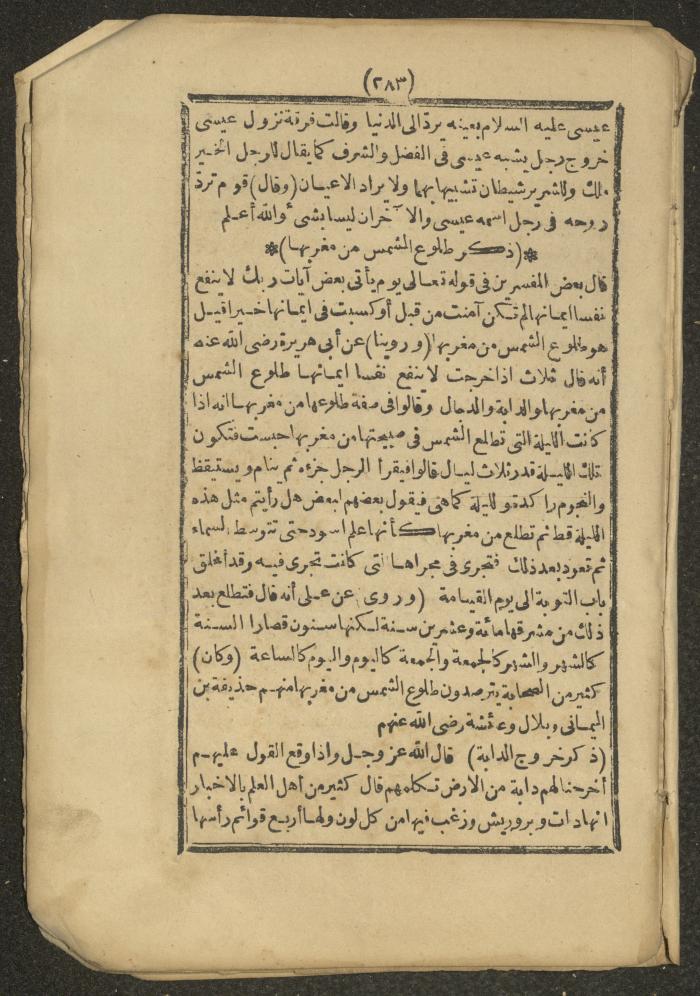 (٢٨٣)
عيسى عليه السلام بعينه يردّ الى الدنيا وقالت فرقة نزول عيسى
خروج رجل يشبه عيسى فى الفضل والشرف كما يقال للرجل الخير
ملك وللشرير شيطان تشبيها بهما ولا يراد الاعيان (وقال) قوم تردّ
روحه فى رجل اسمه عيسى والآخران ليسا بشىء والله أعلم
*(ذكر طلوع الشمس من مغربها)*
قال بعض المفسرين فى قوله تعالى يوم يأتى بعض آيات ربك لا ينفع
نفسا ايمانها لم تكن آمنت من قبل أو كسبت فى ايمانها خيرا قيل
هو طلوع الشمس من مغربها (وروينا) عن أبى هريرة رضى الله عنه
أنه قال ثلاث اذا خرجت لا ينفع نفسا ايمانها طلوع الشمس
من مغربها والدابة والدجال وقالوا فى صفة طلوعها من مغربها انه اذا
كانت الليلة التى تطلع الشمس فى صبيحتها من مغربها حبست فتكون
تلك الليلة قدر ثلاث ليال قالوا فيقرأ الرجل جزءه ثم ينام ويستيقظ
والنجوم راكدة والليلة كما هى فيقول بعضهم لبعض هل رأيتم مثل هذه
الليلة قط ثم تطلع من مغربها كأنها علم اسود حتى تتوسط السماء
ثم تعود بعد ذلك فتجرى فى مجراها التى كانت تجرى فيه وقد أغلق
باب التوبة الى يوم القيامة (وروى) عن على أنه قال فتطلع بعد
ذلك من مشرقها مائة وعشرين سنة لكنها سنون قصارا السنة
كالشهر والشهر كالجمعة والجمعة كاليوم واليوم كالساعة (وكان)
كثير من الصحابة يترصدون طلوع الشمس من مغربها منهم حذيفة بن
اليمانى وبلال وعائشة رضى الله عنهم
(ذكر خروج الدابة) قال الله عز وجل واذا وقع القول عليهم
أخرجنا لهم دابة من الارض تكلمهم قال كثير من أهل العلم بالاخبار
انها ذات وبر وريش وزغب فيها من كل لون ولها أربع قوائم رأسها